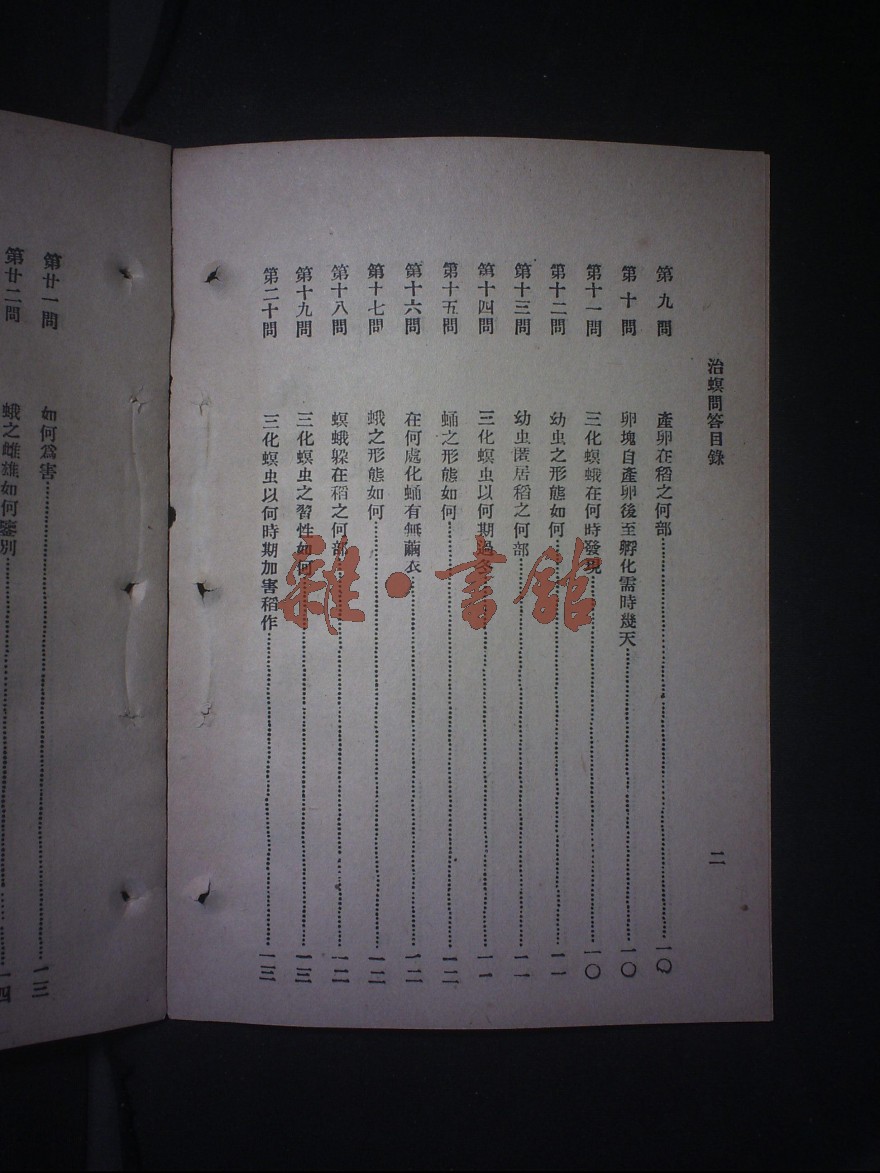 治螟問答目錄 二
第九問 產卵在稻之何部 一〇
第十問 卵塊自產卵後至孵化需時幾天 一〇
第十一問 三化螟蛾在何時發現 一〇
第十二問 幼虫之形態如何 一一
第十三問 幼虫匿居稻之何部 一一
第十四問 三化螟虫以何期過冬 一一
第十五問 蛹之形態如何 一二
第十六問 在何處化蛹有無繭衣 一二
第十七問 蛾之形態如何 一二
第十八問 螟蛾躲在稻之何部 一二
第十九問 三化螟虫之習性如何 一三
第二十問 三化螟虫以何時期加害稻作 一三
第廿一問 如何爲害 一三
第廿二問 蛾之雌雄如何鑒別 一四
雜·書館